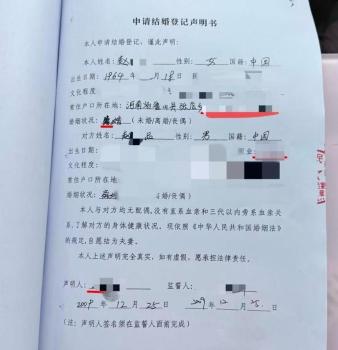 申请结婚登记声明书
本人申请结婚登记、谨此声明：
本人姓名：赵 性别：女 国籍：中国
出生日期：1964年 月18日
文化程度
常住户口所在地：河南
婚姻状况： （未婚/离婚/丧偶）
对方姓名：赵 性别：男 国籍：中国
出生日期： 职业：
文化程度：
常住户口所在地：
婚姻状况： 婚/丧偶）
本人与对方均无配偶，没有直系血亲和三代以内旁系血亲关
系，了解对方的身体健康状况。现依照《中华人民共和国婚姻法》
的规定，自愿结为夫妻。
本人上述声明完全真实，如有虚假，愿承担法律责任。
声明人： 监督人：
2009年12月25日 2009年12月25日
（注：声明人签名须在监督人面前完成）